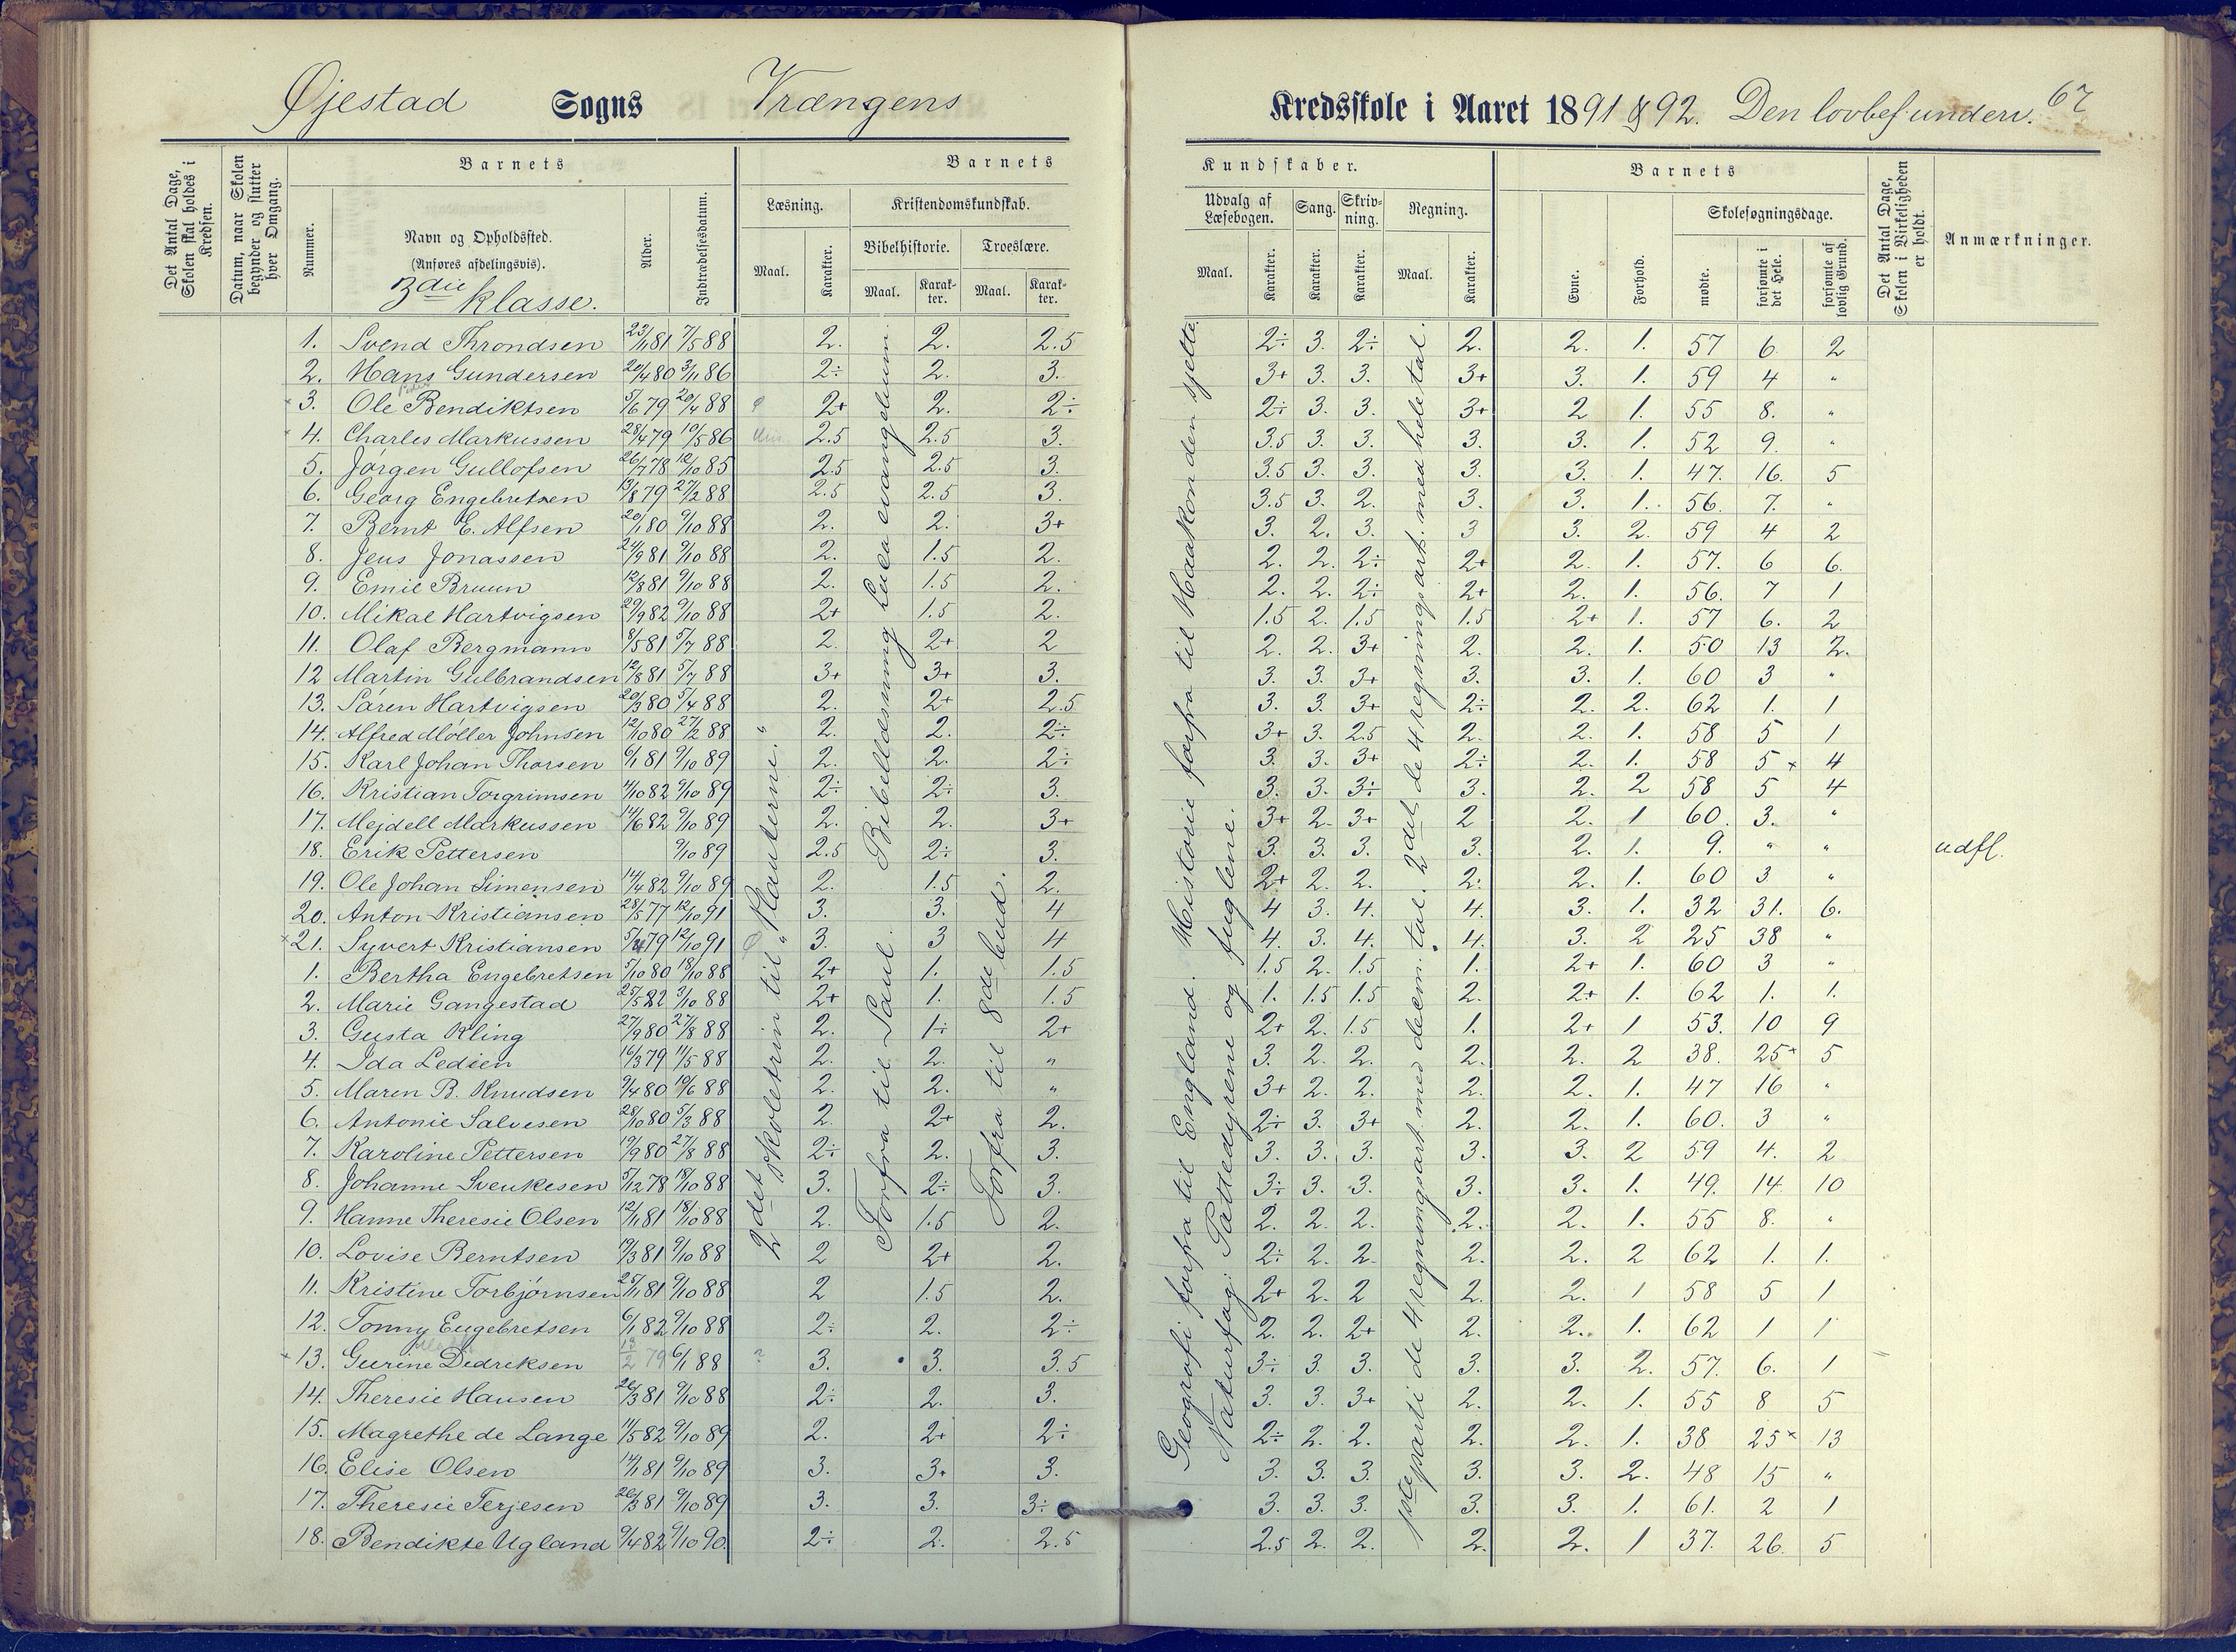 Øjestad Sogns Vrængens Kredsskole i Aaret 1891 & 92. Den lovbef. underv. 67
Det Antal Dage, Skolen skal holdes i Kredsen.
Datum, naar Skolen begynder og slutter hver Omgang.
Barnets
Nummer.
Navn og Opholdssted.
(Anføres afdelingsvis).
3die klasse.
Alder.
Indtrædelsesdatum.
Barnets Kundskaber.
Læsning.
Maal. Karakter.
Kristendomskundskab.
Bibelhistorie. Troeslære.
Maal. Karakter. Maal. Karakter.
Udvalg af Læsebogen. Sang. Skrivning. Regning.
Maal. Karakter. Karakter. Karakter. Maal. Karakter.
Barnets
Evne. Forhold.
Skolesøgningsdage.
mødte. forsømte i det Hele. forsømte af lovlig Grund.
Det Antal Dage, Skolen i Virkeligheden er holdt.
Anmærkninger.
1. Svend Throndsen 23/11 81 7/5 88 2. 2. 2.5 2÷ 3. 2÷ 2. 2. 1. 57 6 2
2. Hans Gundersen 20/4 80 3/11 86 2÷ 2. 3. 3+ 3. 3. 3+ 3. 1. 59 4 "
3. Ole Bendiktsen 5/6 79 20/4 88 2+ 2. 2÷ 2÷ 3. 3. 3+ 2 1. 55 8. "
4. Charles Markussen 28/4 79 10/5 86 2.5 2.5 3. 3.5 3. 3. 3. 3. 1. 52 9. "
5. Jørgen Gullofsen 26/7 78 12/10 85 2.5 2.5 3. 3.5 3. 3. 3. 3. 1. 47. 16. 5
6. Georg Engebretsen 13/8 79 27/2 88 2.5 2.5 3. 3.5 3. 2. 3. 3. 1. 56. 7. "
7. Bernt E. Alfsen 20/1 80 9/10 88 2. 2. 3+ 3. 2. 3. 3 3. 2. 59 4 2
8. Jens Jonassen 24/9 81 9/10 88 2. 1.5 2. 2. 2. 2÷ 2+ 2. 1. 57. 6 6.
9. Emil Bruun 12/8 81 9/10 88 2. 1.5 2. 2. 2. 2÷ 2+ 2. 1. 56. 7 1
10. Mikal Hartvigsen 29/9 82 9/10 88 2+ 1.5 2. 1.5 2. 1.5 1.5 2+ 1. 57 6. 2
11. Olaf Bergmann 8/5 81 5/7 88 2. 2+ 2 2. 2. 3+ 2. 2. 1. 50 13 2.
12 Martin Gulbrandsen 12/8 81 5/7 88 3+ 3+ 3. 3. 3. 3+ 3. 3. 1. 60 3 "
13. Søren Hartvigsen 20/3 80 5/4 88 2. 2+ 2.5 3. 3. 3+ 2÷ 2. 2. 62 1. 1
14. Alfred Møller Johnsen 12/10 80 27/2 88 2. 2. 2÷ 3+ 3. 2.5 2. 2. 1. 58 5 1
15. Karl Johan Thorsen 6/1 81 9/10 89 2. 2. 2÷ 3. 3. 3+ 2÷ 2. 1. 58 5 × 4
16. Kristian Torgrimsen 4/10 82 9/10 89 2÷ 2÷ 3. 3. 3. 3÷ 3. 2. 2 58 5 4
17. Mejdell Markussen 14/6 82 9/10 89 2. 2. 3+ 3+ 2 3+ 2 2. 1 60. 3. "
18. Erik Pettersen 9/10 89 2.5 2÷ 3. 3. 3. 3. 3. 2. 1. 9. " " udfl.
19. Ole Johan Simensen 14/4 82 9/10 89 2. 1.5 2. 2+ 2. 2. 2. 2. 1. 60 3 "
20. Anton Kristiansen 28/5 77 12/10 91 3. 3. 4 4 3. 4. 4. 3. 1. 32 31. 6.
×21. Syvert Kristiansen 5/4 79 12/10 91 3. 3 4 4. 3. 4. 4. 3. 2 25 38 "
1. Bertha Engebretsen 5/10 80 18/10 88 2+ 1. 1.5 1.5 2. 1.5 1. 2+ 1. 60 3 "
2. Marie Gangestad 25/5 82 3/10 88 2+ 1. 1.5 1. 1.5 1.5 2. 2+ 1. 62 1. 1.
3. Gusta Kling 27/9 80 27/8 88 2. 1÷ 2+ 2+ 2. 1.5 1. 2+ 1 53. 10 9
4. Ida Ledien 16/3 79 11/5 88 2. 2. " 3. 2. 2. 2. 2. 2 38. 25× 5
5. Maren B. Knudsen 9/4 80 10/6 88 2. 2. " 3+ 2. 2. 2. 2. 1. 47 16 "
6. Antonie Salvesen 28/10 80 5/3 88 2. 2+ 2. 2÷ 3. 3+ 2. 2. 1. 60. 3 "
7. Karoline Pettersen 19/9 80 27/8 88 2÷ 2. 3. 3. 3. 3. 3. 3. 2 59 4. 2
8. Johanne Svenkesen 5/12 78 18/10 88 3. 2÷ 3. 3÷ 3. 3. 3. 3. 1. 49. 14. 10
9. Hanne Theresie Olsen 12/11 81 18/10 88 2. 1.5 2. 2. 2. 2. 2. 2. 1. 55 8. "
10. Lovise Berntsen 19/3 81 9/10 88 2 2+ 2. 2÷ 2. 2. 2. 2. 2 62 1. 1.
11. Kristine Torbjørnsen 25/11 81 9/10 88 2 1.5 2. 2+ 2. 2 2. 2. 1 58 5 1
12. Tonny Engebretsen 6/1 82 9/10 88 2÷ 2. 2÷ 2. 2. 2+ 2. 2. 1. 62 1 1
×13. Gurine Didriksen 13/2 79 6/1 88 ? 3. 3. 3.5 3÷ 3. 3. 3. 3. 2. 57. 6. 1
14. Theresie Hansen 26/3 81 9/10 88 2÷ 2. 3. 3. 3. 3+ 2. 2. 1. 55 8 5
15. Magrethe de Lange 11/5 82 9/10 89 2. 2+ 2÷ 2÷ 2. 2. 2. 2. 1. 38 25× 13
16. Elise Olsen 14/1 81 9/10 89 3. 3+ 3. 3. 3. 3. 3. 3. 2. 48 15 "
17. Theresie Terjesen 26/3 81 9/10 89 3. 3. 3÷ 3. 3. 3. 3. 3. 1. 61. 2 1
18. Bendikte Ugland 9/4 82 9/10 90. 2÷ 2. 2.5 2.5 2. 2. 2. 2. 1 37. 26. 5
2det skoletrin til "Planterne."
Forfra til Saul. Bibellæsning Luca evangelium.
Forfra til 8de bud.
Geografi forfra til England. Historie forfra til Haakon den sjette.
Naturfag: Pattedyrene og fuglene.
1ste parti de 4 regningsart. med decim. tal. 2det de 4 regningsart. med hele tal.